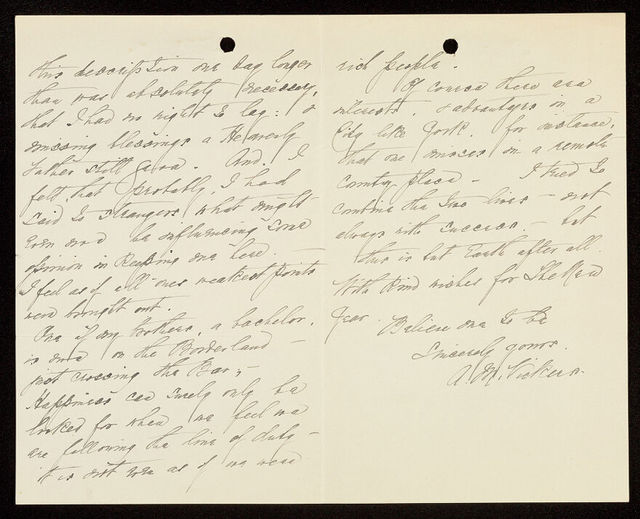 this description one day longer
than was absolutely necessary,
that I had no right to say: &
missing blessings a Heavenly
Father still gives. And, I
felt, that probably, I had
said to strangers, what might
even now be influencing some
opinion in keeping one here. —
I feel as if all one's weakest points
were brought out.
One of my brothers, a bachelor,
is now on the Borderland —
just crossing the Bar; —
Happiness can surely only be
looked for when we feel we
are following the line of duty —
it is not now as if we were
rich people.
Of course there are
interests, & advantages in a
City like York. for instance,
that one misses in a remote
Country place — I tried to
combine the two lives — not
always with success. — but
this is but Earth after all.
With kind wishes for The New
Year.
Believe me to be
Sincerely yours.
A. M. Vickers.